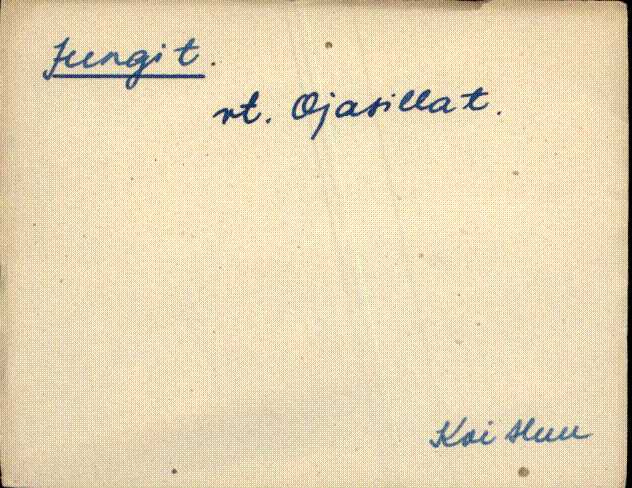 Jungit.
vt. Ojasillat.
Koi